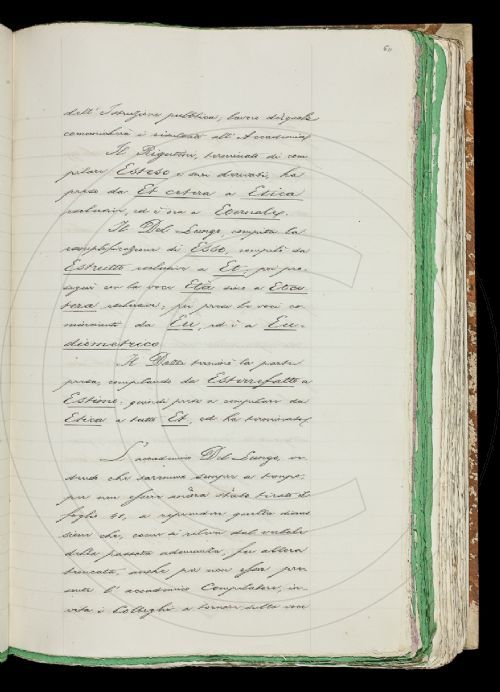 60
dell'Istruzione pubblica; lavoro del quale
comunicherà i risultati all'Accademia.
Il Rigutini, terminati di com-
pilare Esteso e suoi derivati, ha
preso da Et cetera a Etica
esclusive, ed è ora a Eternale.
Il Del Lungo, compita la
esemplificazione di Esso, compilò da
Estratto esclusive a Et; poi pro-
seguì con la voce Età sino a Etce-
tera esclusive; poi prese le voci co-
mincianti da Eu, ed è a Eu-
diometrico.
Il Dazzi terminò la parte
presa, compilando da Esterrefatto a
Estione; quindi prese a compilare da
Etica a tutto Et, ed ha terminato.
L'accademico Del Lungo, ve-
dendo che saremmo sempre a tempo,
per non essere ancora stato tirato il
foglio 41, a riprendere quella discus-
sione che, come si rileva dal verbale
della passata adunanza, fu allora
troncata, anche per non esser pre-
sente l'accademico Compilatore, in-
vita i Colleghi a tornare sulla voce